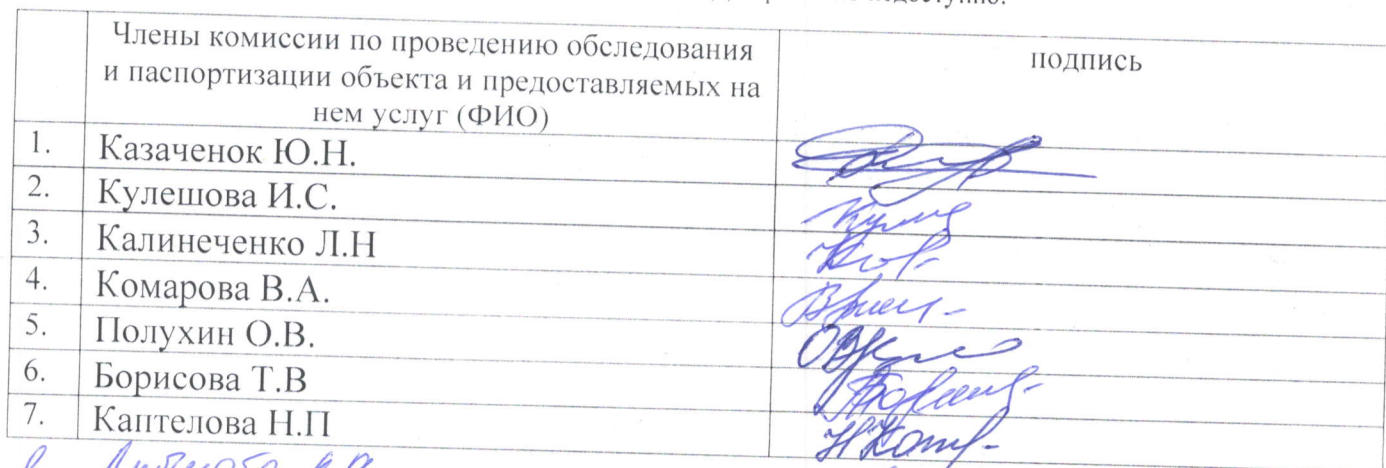 недоступно.
Члены комиссии по проведению обследования
и паспортизации объекта и предоставляемых на
нем услуг (ФИО)
подпись
1. Казаченок Ю.Н.
2. Кулешова И.С.
3. Калинеченко Л.Н
4. Комарова В.А.
5. Полухин О.В.
6. Борисова Т.В
7. Каптелова Н.П